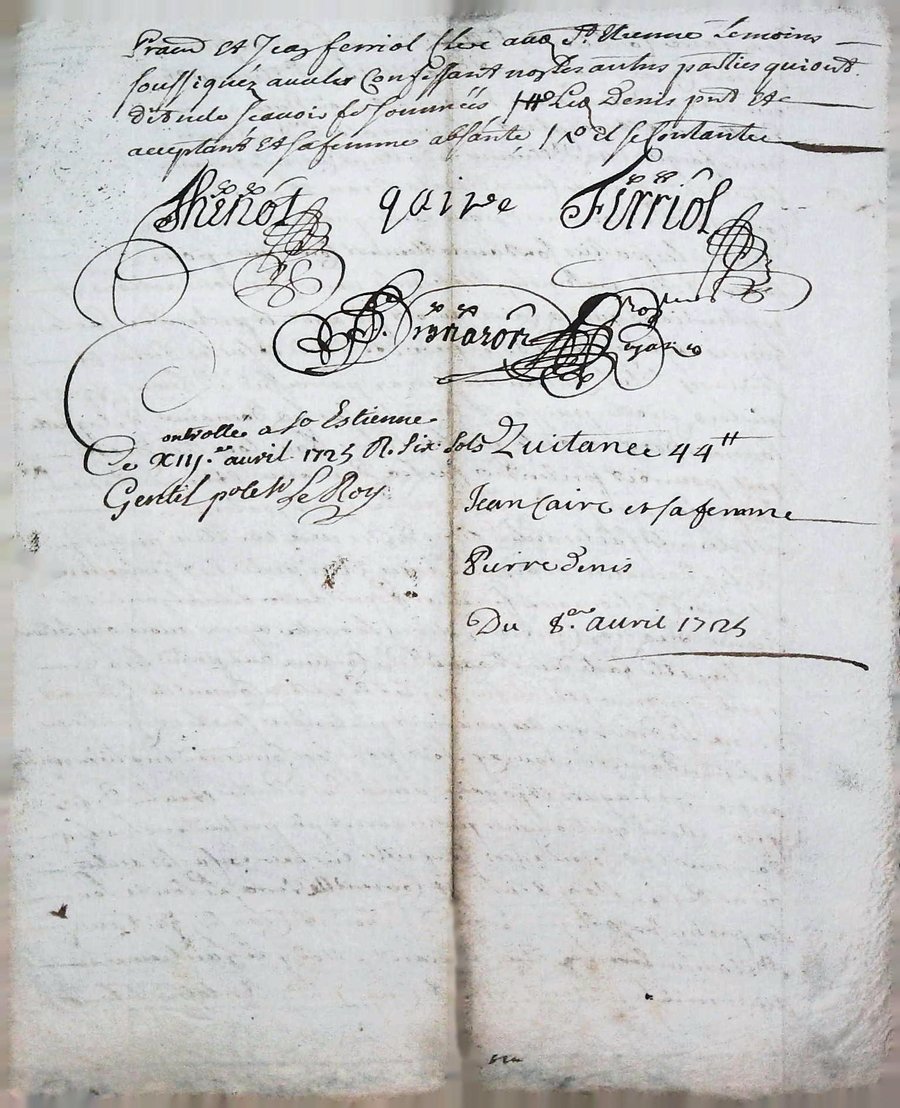 et Jean ferriol Clerc audt St. Etienne temoins
soussignéz avec les Confessant nos les autres parties qui ont
dit ne le scavoir de ce sommées Led Denis pnt et
acceptant Et sa femme absante et se contante
Thenot quire Ferriol
Dignaron
royal
ontrolle a St Estienne
Ce XIII.e avril 1725 R. Six Sols
Gentil po le Sr Le Roy
Quitance 44tt
Jean Caire et sa femme
Pierre denis
Du 8.e avril 1725